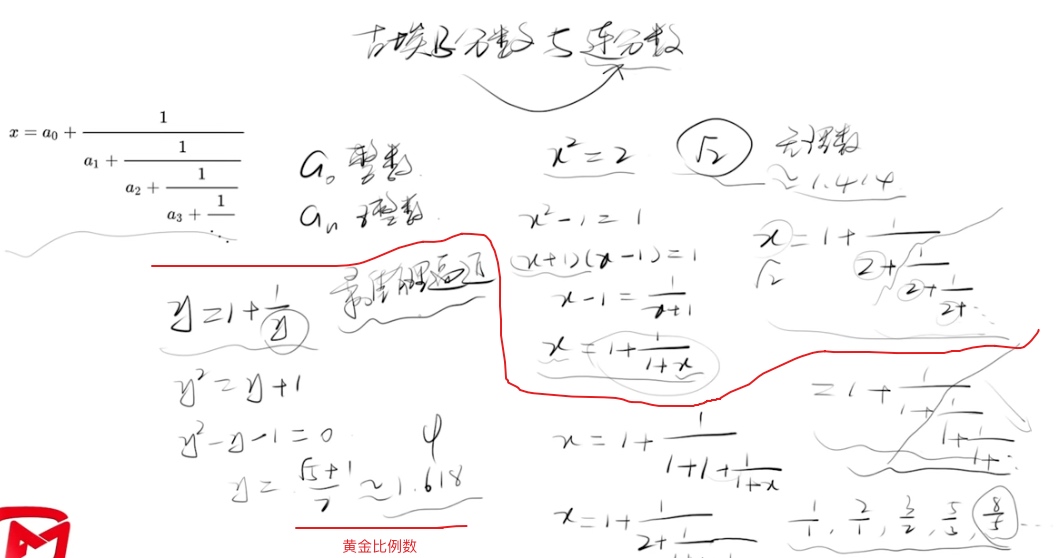 古埃及分数与连分数
x = a₀ + 1/(a₁ + 1/(a₂ + 1/(a₃ + 1/⋱)))
a₀ 整数
aₙ 正整数
x² = 2
√2 无理数
≈ 1.414
x² - 1 = 1
(x+1)(x-1) = 1
x - 1 = 1/(x+1)
x = 1 + 1/(1+x)
x = 1 + 1/(2 + 1/(2 + 1/(2+...
√2
最佳有理逼近
y = 1 + 1/y
y² = y + 1
y² - y - 1 = 0
φ
y = (√5+1)/2 ≈ 1.618
黄金比例数
x = 1 + 1/(1+1+1/(1+x))
x = 1 + 1/(2 + 1/
= 1 + 1/(1 + 1/(1 + 1/(1+...
1/1, 2/1, 3/2, 5/3, 8/5 ...
M